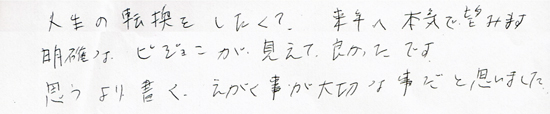 人生の転換をしたくて、来年へ本気で望みます
明確なビジョンが見えて良かったです
思うより書く、えがく事が大切な事だと思いました